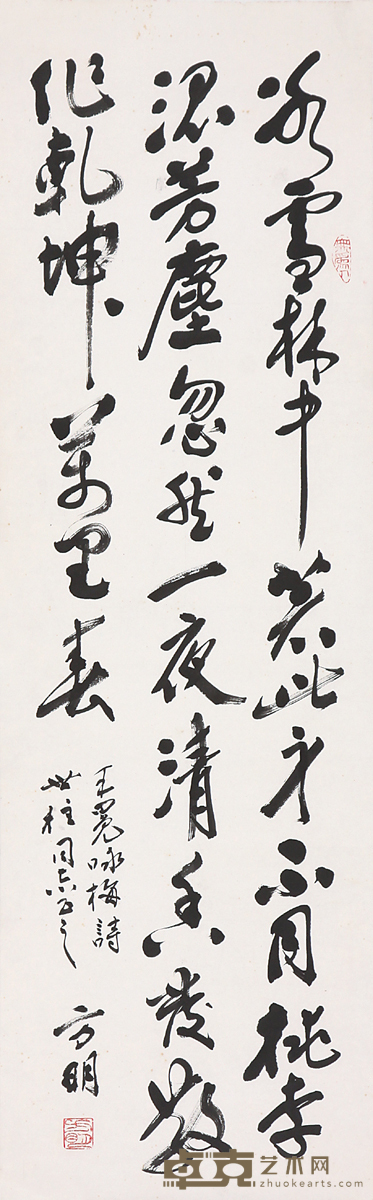 冰雪林中著此身不同桃李
混芳塵忽然一夜清香發散
作乾坤萬里春
王冕咏梅詩
世柱同志正之
方明
卓克艺术网
zhuokearts.com